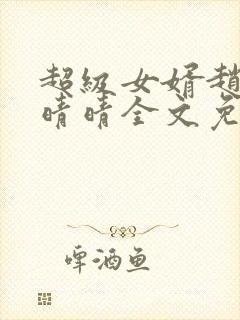 超级女婿赵
晴晴全文免
啤酒鱼